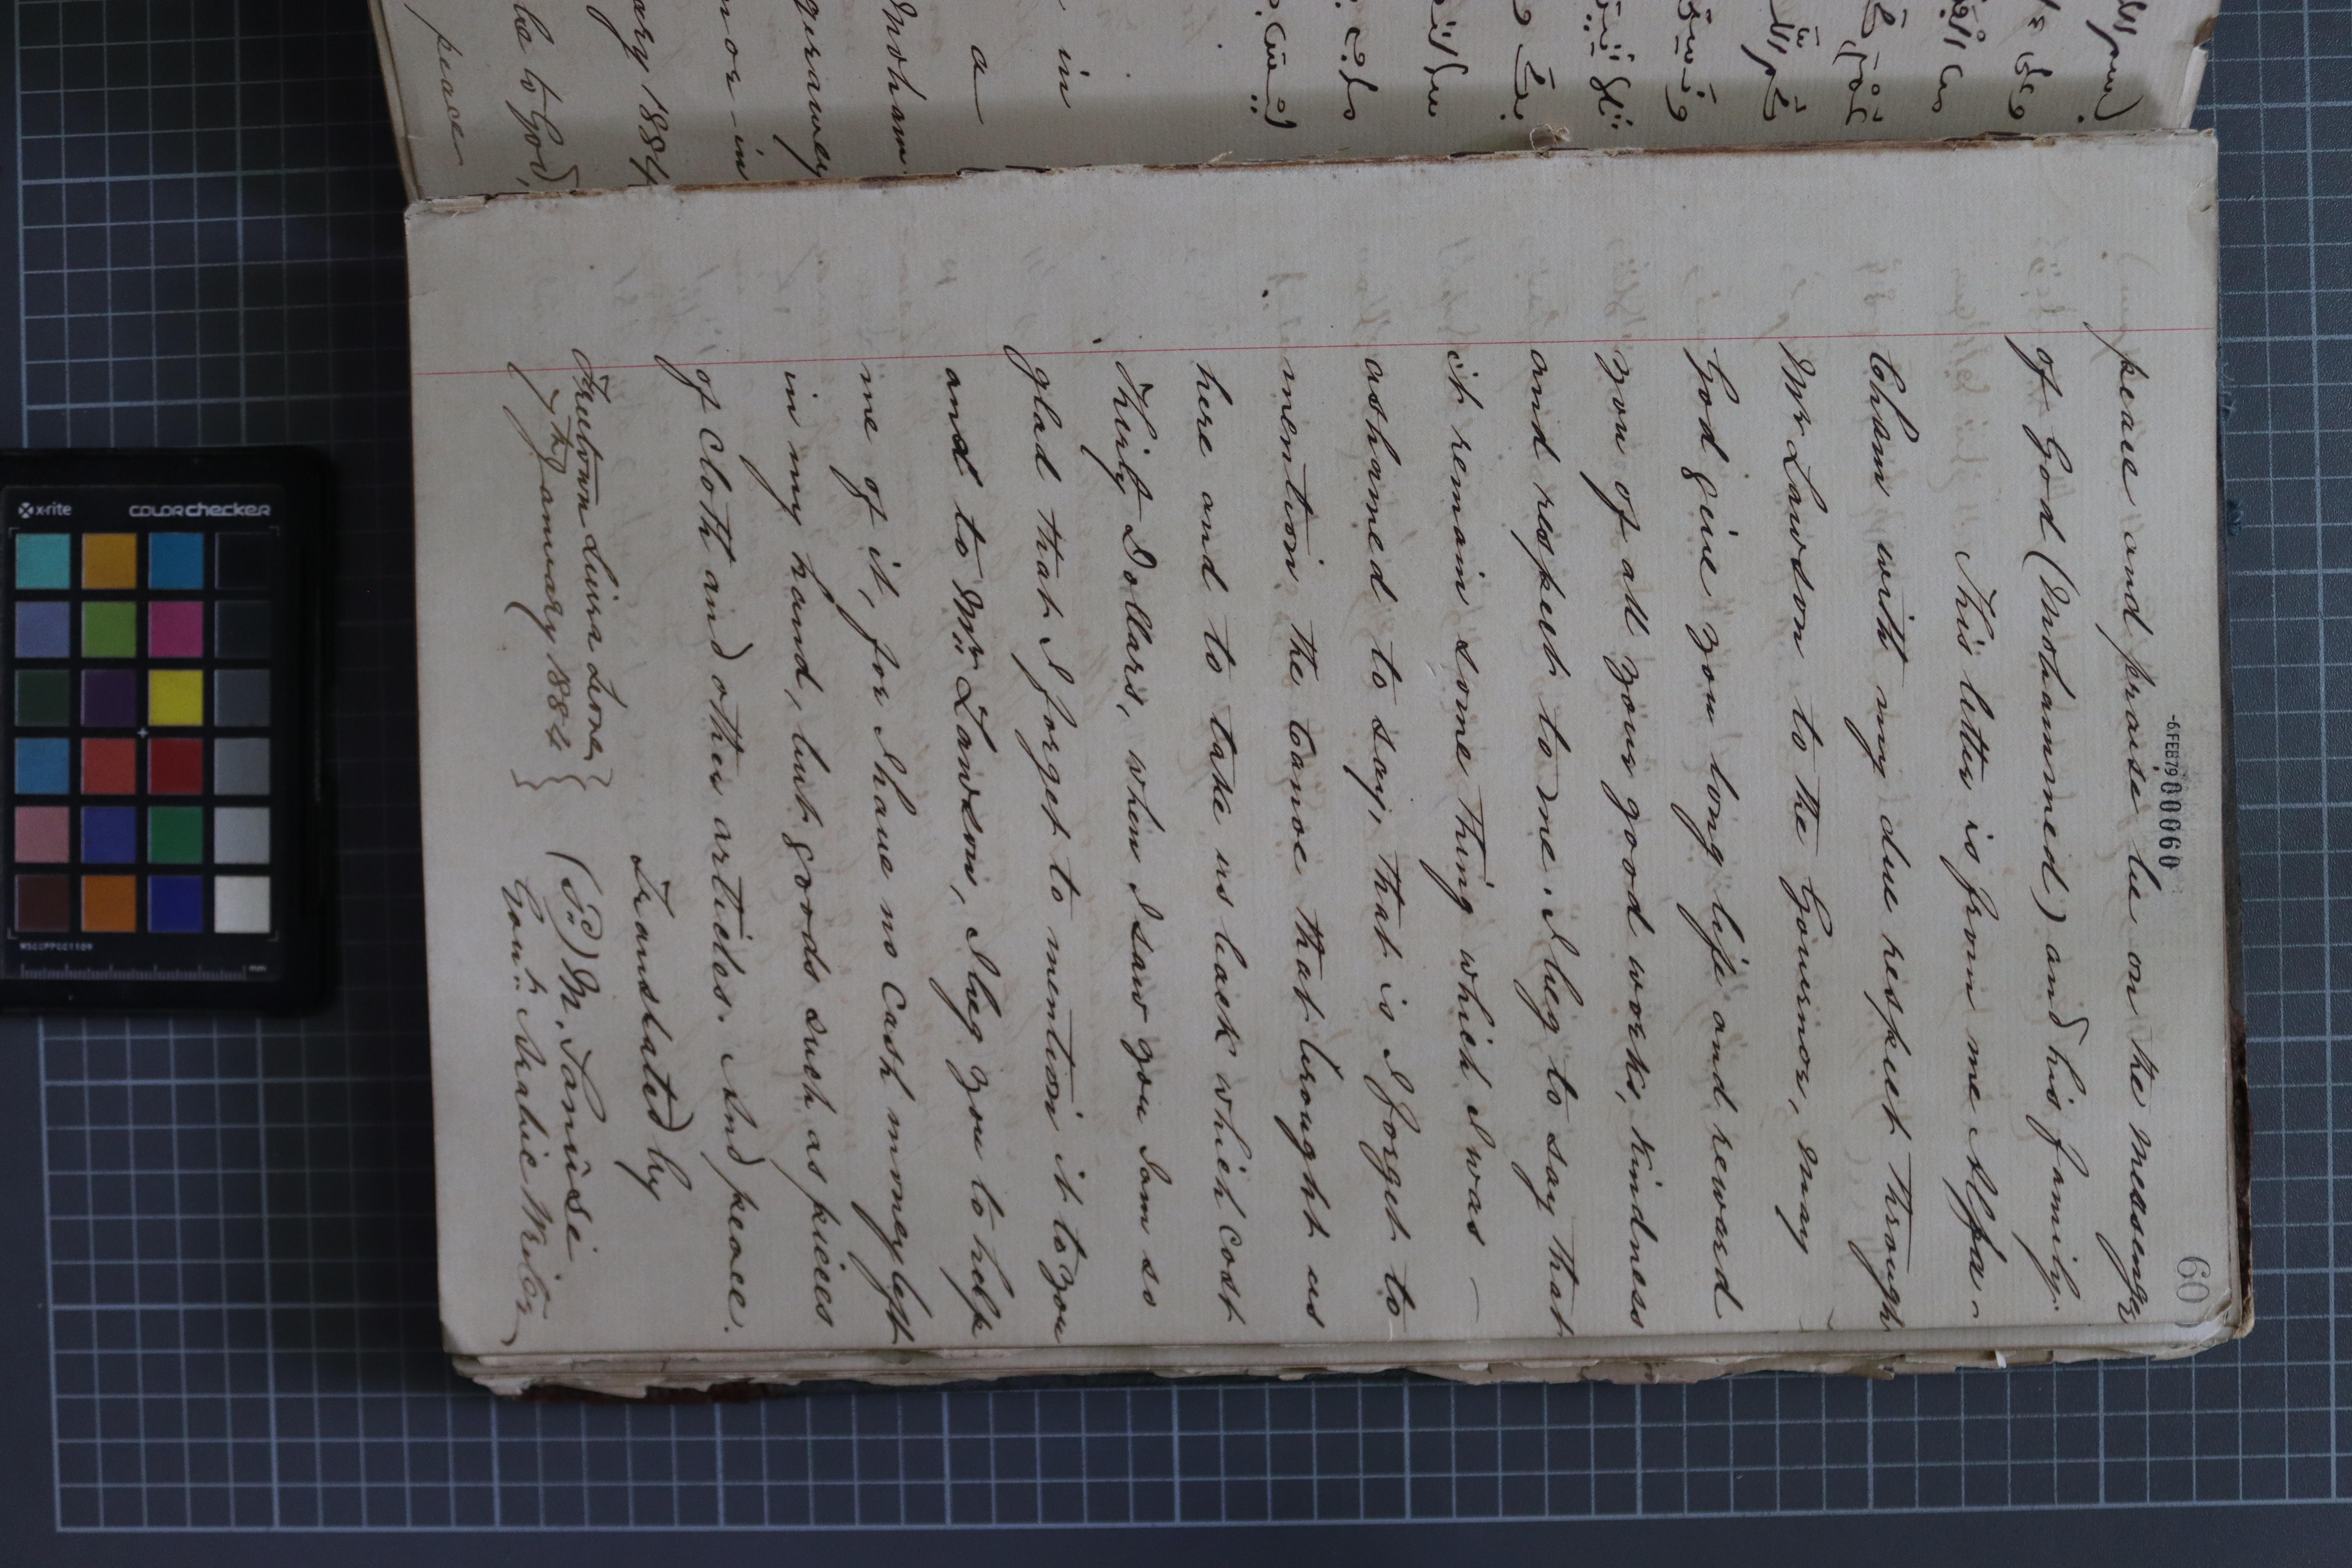 60
-6FEB79 000060
peace and praise be on the messenger
of God (Mohammed) and his family.
This letter is from me Alfa-
Cham with my due respect through
Mr Lawson to the Governor, may
God give you long life and reward
you of all your good works, kindness
and respect to me. I beg to say that
it remain some thing which I was —
ashamed to say, that is I forget to
mention the Canoe that brought us
here and to take us back which cost
Thirty Dollars, when I saw you I am so
glad that I forget to mention it to you
and to Mr Lawson, I beg you to help
me of it, for I have no cash money left
in my hand, but goods such as pieces
of cloth and other articles. And peace.
Translated by
Freetown Sierra Leone } (Sd) M. Sanusi
7th January 1884 } Govt. Arabic Writer
in
a
Moham
nor in
ary 1884
be to God,
peace
x-rite
colorchecker
MSCCPPCC1109
mm